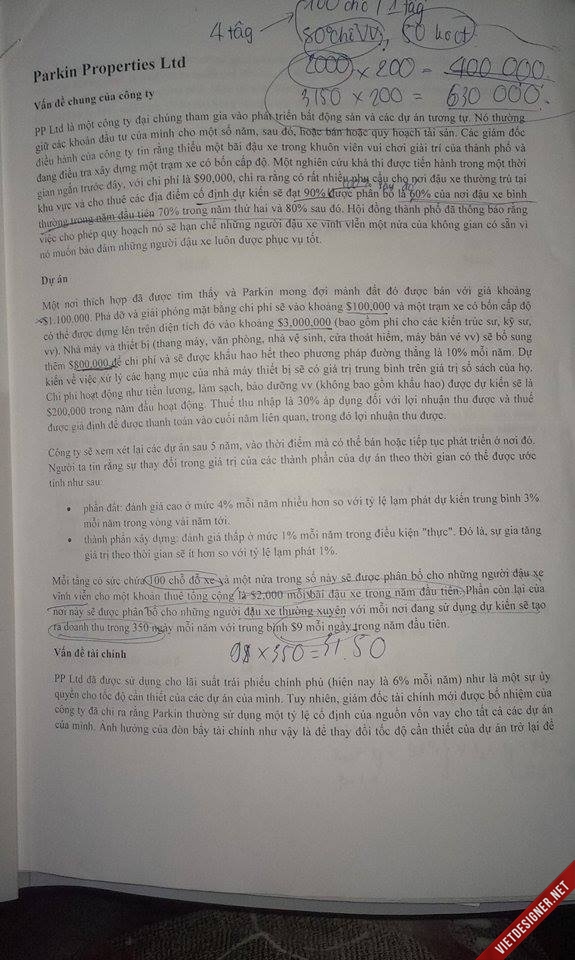 100 chỗ / 1 tầg
4 tâg
50 chỗ VV, 50 hoct
2000 × 200 = 400 000.
3150 × 200 = 630 000.
Parkin Properties Ltd
Vấn đề chung của công ty
PP Ltd là một công ty đại chúng tham gia vào phát triển bất động sản và các dự án tương tự. Nó thường
giữ các khoản đầu tư của mình cho một số năm, sau đó, hoặc bán hoặc quy hoạch tài sản. Các giám đốc
điều hành của công ty tin rằng thiếu một bãi đậu xe trong khuôn viên vui chơi giải trí của thành phố và
đang điều tra xây dựng một trạm xe có bốn cấp độ. Một nghiên cứu khả thi được tiến hành trong một thời
gian ngắn trước đây, với chi phí là $90,000, chỉ ra rằng có rất nhiều nhu cầu cho nơi đậu xe thường trú tại
khu vực và cho thuê các địa điểm cố định dự kiến sẽ đạt 90% được phân bổ là 60% của nơi đậu xe bình
thường trong năm đầu tiên 70% trong năm thứ hai và 80% sau đó. Hội đồng thành phố đã thông báo rằng
việc cho phép quy hoạch nó sẽ hạn chế những người đậu xe vĩnh viễn một nửa của không gian có sẵn vì
nó muốn bảo đảm những người đậu xe luôn được phục vụ tốt.
Dự án
Một nơi thích hợp đã được tìm thấy và Parkin mong đợi mảnh đất đó được bán với giá khoảng
$1.100.000. Phá dỡ và giải phóng mặt bằng chi phí sẽ vào khoảng $100,000 và một trạm xe có bốn cấp độ
có thể được dựng lên trên diện tích đó vào khoảng $3,000,000 (bao gồm phí cho các kiến trúc sư, kỹ sư,
vv). Nhà máy và thiết bị (thang máy, văn phòng, nhà vệ sinh, cửa thoát hiểm, máy bán vé vv) sẽ bổ sung
thêm $800,000 để chi phí và sẽ được khấu hao hết theo phương pháp đường thẳng là 10% mỗi năm. Dự
kiến về việc xử lý các hạng mục của nhà máy thiết bị sẽ có giá trị trung bình trên giá trị sổ sách của họ.
Chi phí hoạt động như tiền lương, làm sạch, bảo dưỡng vv (không bao gồm khấu hao) được dự kiến sẽ là
$200,000 trong năm đầu hoạt động. Thuế thu nhập là 30% áp dụng đối với lợi nhuận thu được và thuế
được giả định để được thanh toán vào cuối năm liên quan, trong đó lợi nhuận thu được.
Công ty sẽ xem xét lại các dự án sau 5 năm, vào thời điểm mà có thể bán hoặc tiếp tục phát triển ở nơi đó.
Người ta tin rằng sự thay đổi trong giá trị của các thành phần của dự án theo thời gian có thể được ước
tính như sau:
• phần đất: đánh giá cao ở mức 4% mỗi năm nhiều hơn so với tỷ lệ lạm phát dự kiến trung bình 3%
mỗi năm trong vòng vài năm tới.
• thành phần xây dựng: đánh giá thấp ở mức 1% mỗi năm trong điều kiện "thực". Đó là, sự gia tăng
giá trị theo thời gian sẽ ít hơn so với tỷ lệ lạm phát 1%.
Mỗi tầng có sức chứa 100 chỗ đỗ xe và một nửa trong số này sẽ được phân bổ cho những người đậu xe
vĩnh viễn cho một khoản thuê tổng cộng là $2,000 mỗi bãi đậu xe trong năm đầu tiên. Phần còn lại của
nơi này sẽ được phân bổ cho những người đậu xe thường xuyên với mỗi nơi đang sử dụng dự kiến sẽ tạo
ra doanh thu trong 350 ngày mỗi năm với trung bình $9 mỗi ngày trong năm đầu tiên.
9$ × 350 = 31.50
Vấn đề tài chính
PP Ltd đã được sử dụng cho lãi suất trái phiếu chính phủ (hiện nay là 6% mỗi năm) như là một sự ủy
quyền cho tốc độ cần thiết của các dự án của mình. Tuy nhiên, giám đốc tài chính mới được bổ nhiệm của
công ty đã chỉ ra rằng Parkin thường sử dụng một tỷ lệ cố định của nguồn vốn vay cho tất cả các dự án
của mình. Ảnh hưởng của đòn bẩy tài chính như vậy là để thay đổi tốc độ cần thiết của dự án trở lại để
VIETDESIGNER.NET